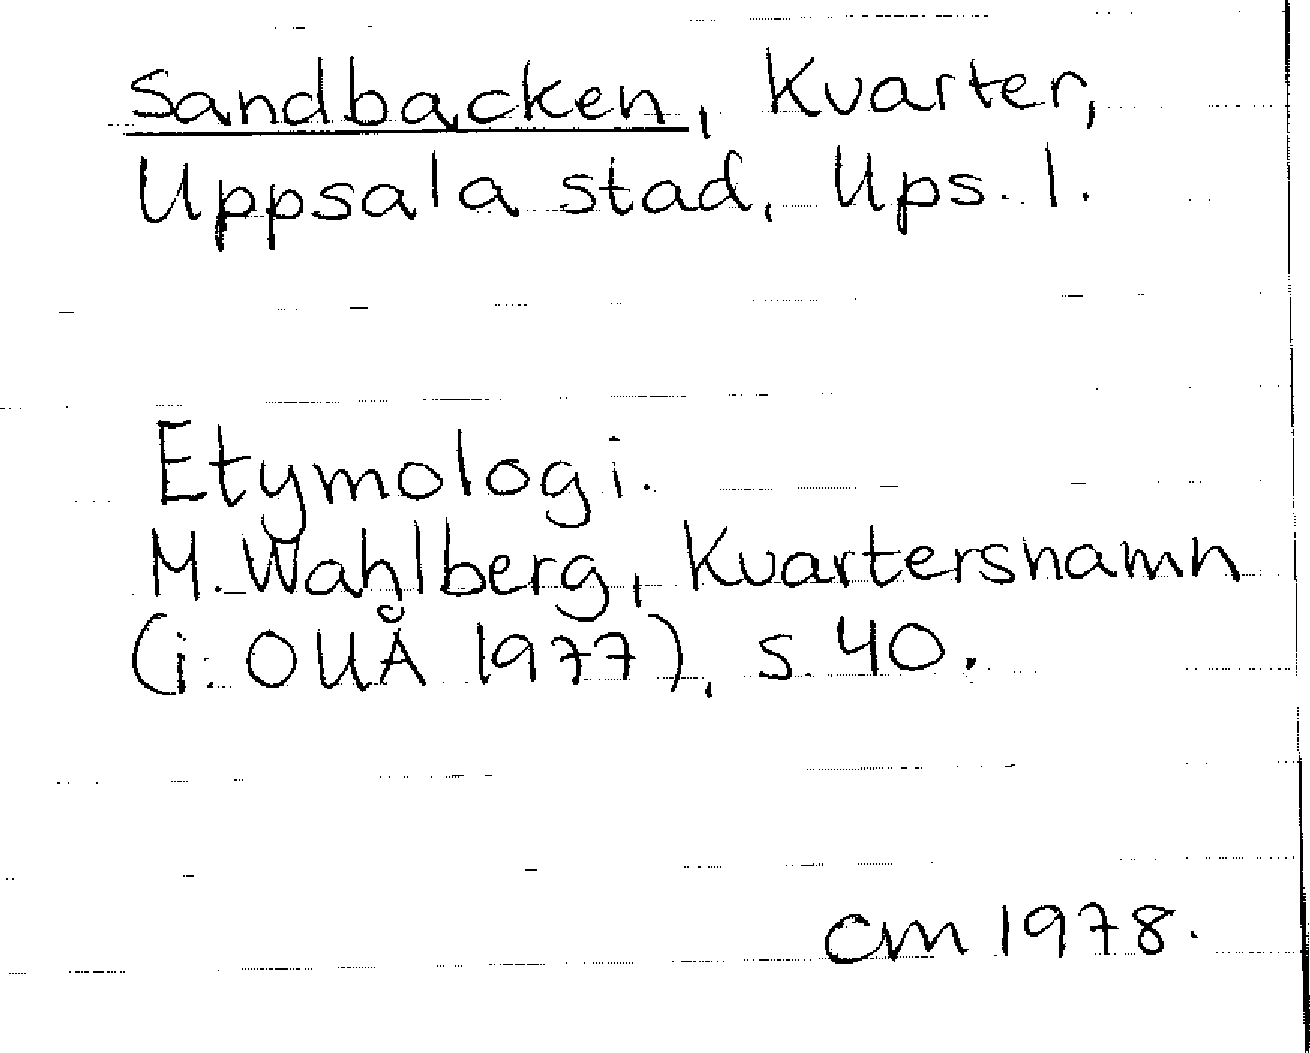 Sandbacken, Kvarter,
Uppsala stad, Ups. l.
Etymologi.
M. Wahlberg, Kvartersnamn
(i: OUÅ 1977), s. 40.
CM 1978.